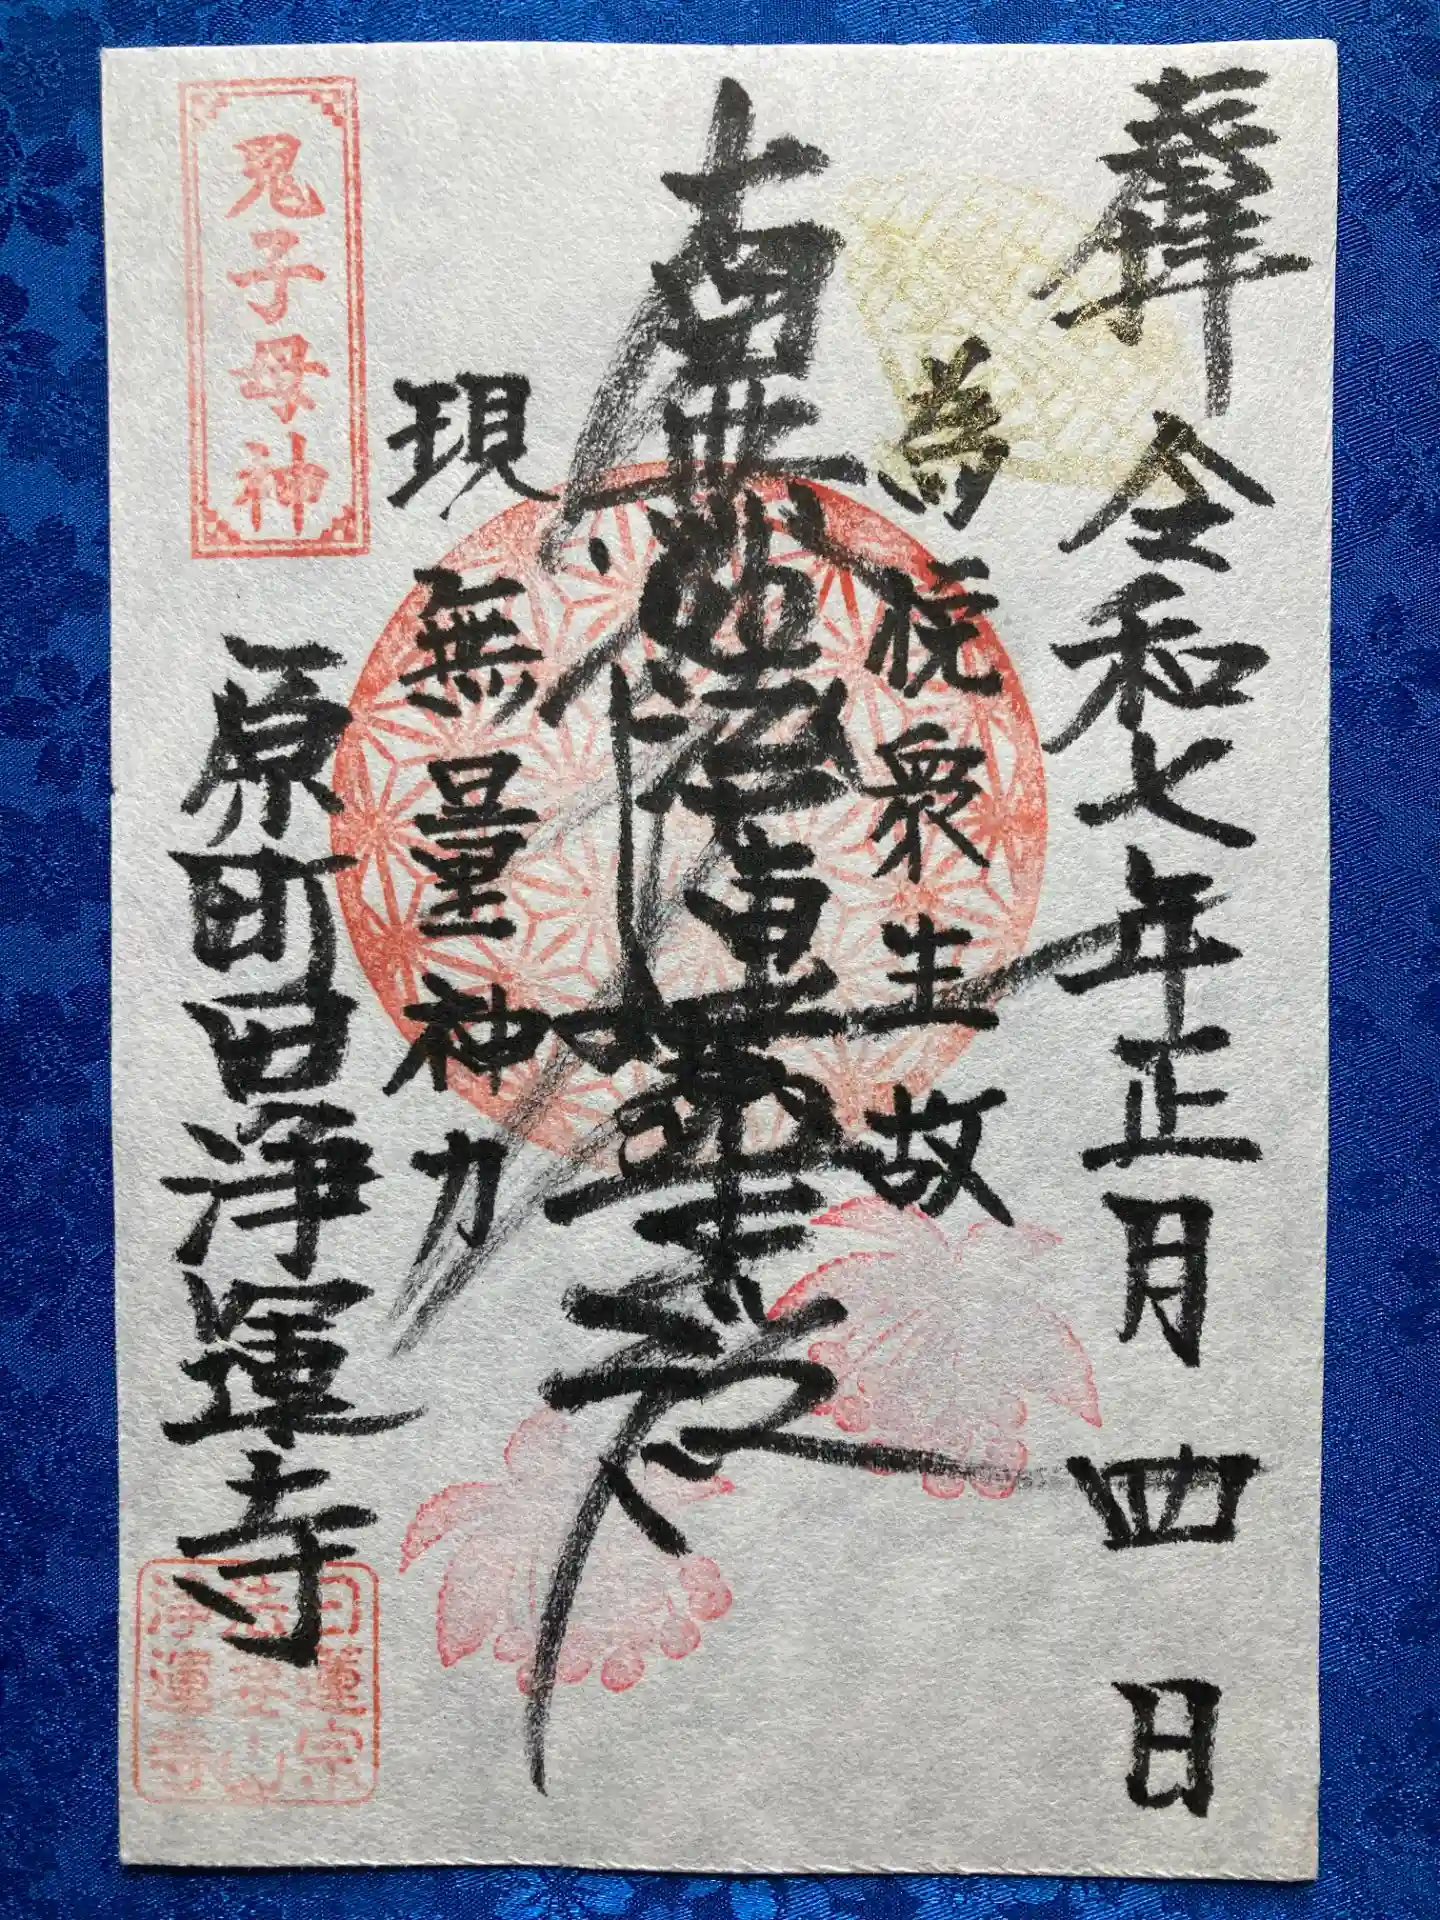 奉拝 令和七年正月四日
為悦衆生故
南無妙法蓮華経
現無量神力
鬼子母神
原町田浄運寺
日蓮宗
浄運寺